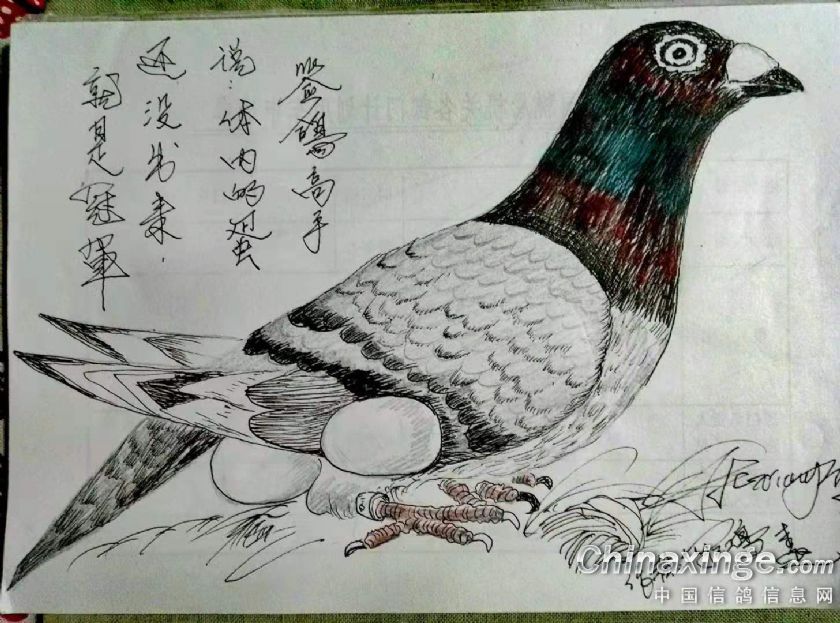 鉴鸽高手
说:体内的蛋
还没出来,
就是冠軍
Chinaxinge.com
中国信鸽信息网